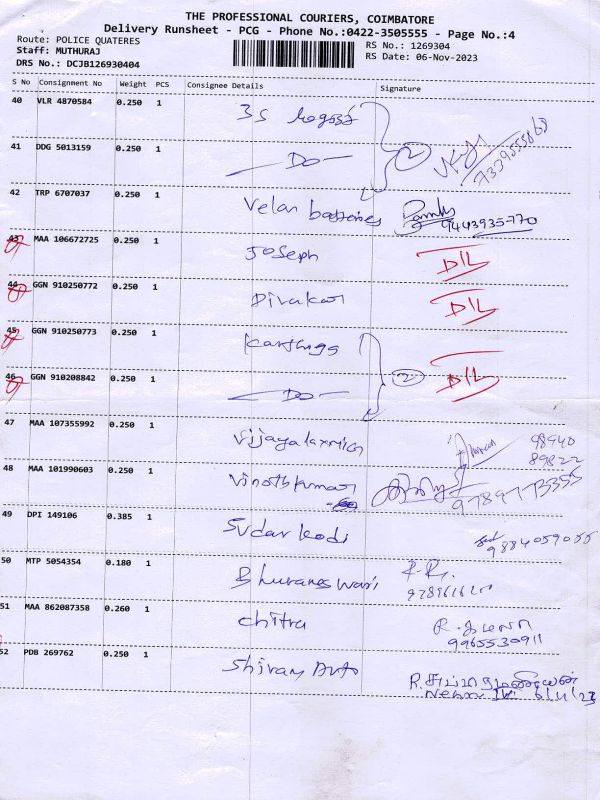 THE PROFESSIONAL COURIERS, COIMBATORE
Delivery Runsheet - PCG - Phone No.:0422-3505555 - Page No.:4
Route: POLICE QUATERES
RS No.: 1269304
Staff: MUTHURAJ
RS Date: 06-Nov-2023
DRS No.: DCJB126930404
S No Consignment No Weight PCS Consignee Details Signature
40 VLR 4870584 0.250 1 3S
41 DDG 5013159 0.250 1 — Do — 2 7339555868
42 TRP 6707037 0.250 1 Velan batteries 9443935770
43 MAA 106672725 0.250 1 Joseph D/L
44 GGN 910250772 0.250 1 Divakar D/L
45 GGN 910250773 0.250 1
46 GGN 910208842 0.250 1 — Do — 2 D/L
47 MAA 107355992 0.250 1 Vijayalaxmi 98940
89822
48 MAA 101990603 0.250 1 Vinothkumar 9789773355
49 DPI 149106 0.385 1 Sudarkodi 9884059055
50 MTP 5054354 0.180 1 Bhuvaneswari R.R.
51 MAA 862087358 0.260 1 Chitra R.
9965530911
52 PDB 269762 0.250 1 Shivam Auto R.
6/11/23